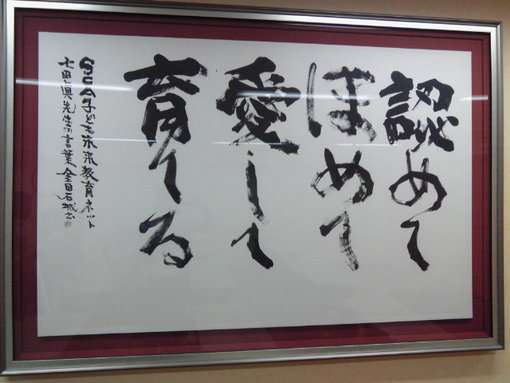 認めて
ほめて
愛して
育てる
SCA子ども未来教育ネット
七田眞先生の言葉 金田石城書